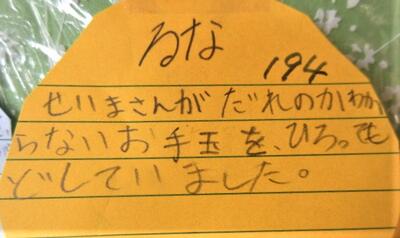 るな
194
せいまさんがだれのかわか
らないお手玉を、ひろっても
どしていました。